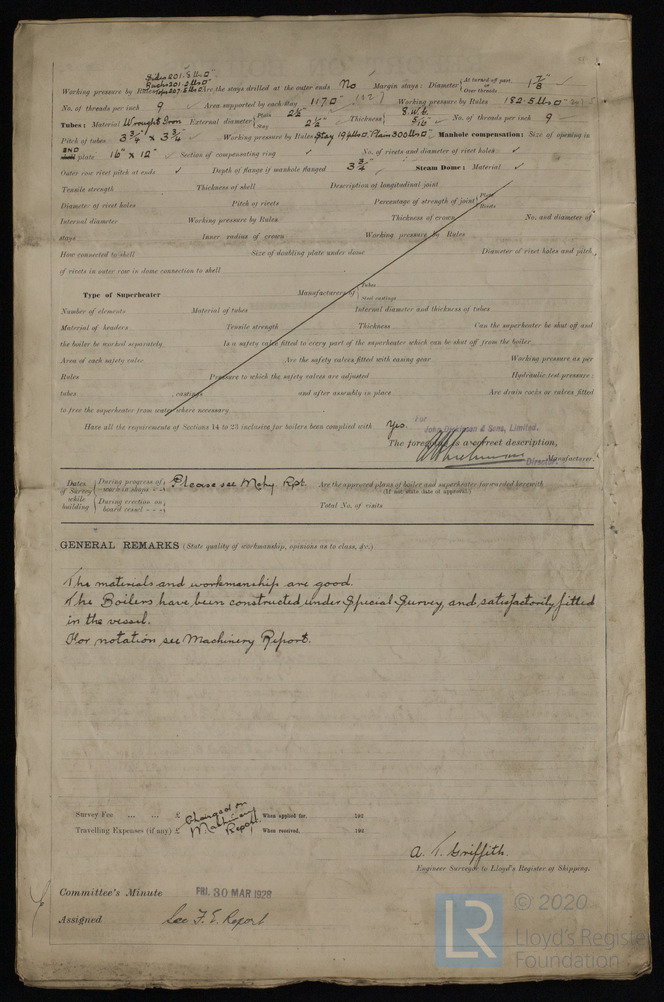 Sides 201.5 lbs □"
Backs 201.2 lbs □"
Working pressure by Rules Tops 207.5 lbs □" Are the stays drilled at the outer ends No Margin stays: Diameter { At turned off part, or Over threads 1 7/8" ✓
No. of threads per inch 9 Area supported by each stay 117 □" Working pressure by Rules 182.5 lbs □"
Tubes: Material Wrought Iron External diameter { Plain 2½" Stay 2½" Thickness { 8 W.G. 5/16" ✓ No. of threads per inch 9
Pitch of tubes 3¾" x 3¾" ✓ Working pressure by Rules Stay 194 lbs □", Plain 300 lbs □" Manhole compensation: Size of opening in
END plate 16" x 12" ✓ Section of compensating ring ✓ No. of rivets and diameter of rivet holes ✓
Outer row rivet pitch at ends ✓ Depth of flange if manhole flanged 3¾" ✓ Steam Dome: Material ✓
Tensile strength Thickness of shell Description of longitudinal joint
Diameter of rivet holes Pitch of rivets Percentage of strength of joint { Plate Rivets
Internal diameter Working pressure by Rules Thickness of crown No. and diameter of
stays Inner radius of crown Working pressure by Rules
How connected to shell Size of doubling plate under dome Diameter of rivet holes and pitch
of rivets in outer row in dome connection to shell
Type of Superheater Manufacturers of { Tubes Steel castings
Number of elements Material of tubes Internal diameter and thickness of tubes
Material of headers Tensile strength Thickness Can the superheater be shut off and
the boiler be worked separately Is a safety valve fitted to every part of the superheater which can be shut off from the boiler
Area of each safety valve Are the safety valves fitted with easing gear Working pressure as per
Rules Pressure to which the safety valves are adjusted Hydraulic test pressure:
tubes castings and after assembly in place Are drain cocks or valves fitted
to free the superheater from water where necessary
Have all the requirements of Sections 14 to 23 inclusive for boilers been complied with Yes.
For
John Dickinson & Sons, Limited.
The foregoing is a correct description,
Director. Manufacturer.
Dates of Survey while building { During progress of work in shops - - Please see Mchy. Rpt. Are the approved plans of boiler and superheater forwarded herewith
(If not state date of approval.)
{ During erection on board vessel - - - Total No. of visits
GENERAL REMARKS (State quality of workmanship, opinions as to class, &c.)
The materials and workmanship are good.
The Boilers have been constructed under Special Survey, and satisfactorily fitted
in the vessel.
For notation see Machinery Report.
Survey Fee ... ... £ Charged on When applied for, 192
Travelling Expenses (if any) £ Machinery Report. When received, 192
A. T. Griffith.
Engineer Surveyor to Lloyd's Register of Shipping.
Committee's Minute FRI. 30 MAR 1928
Assigned See F. E. Report
LR © 2020
Lloyd's Register
Foundation